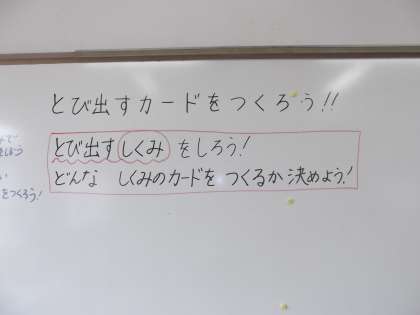 とび出すカードをつくろう!!
とび出すしくみをしろう!
どんな しくみのカードを つくるか 決めよう!
をつくろう!